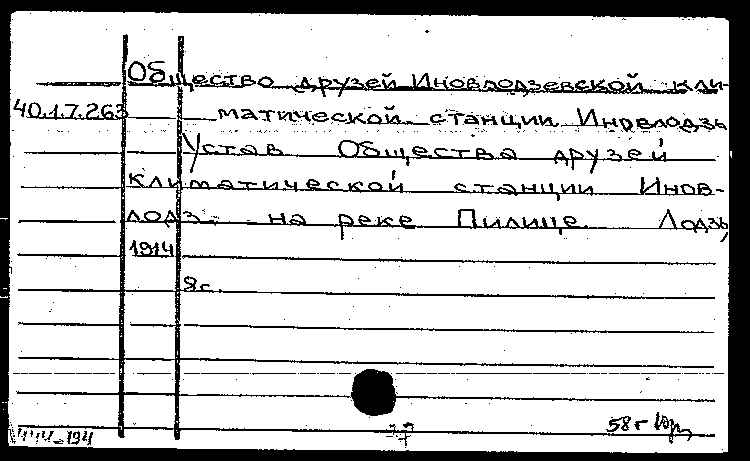 Общество друзей Иновлодзевской кли-
40.1.7.263 матической станции Иновлодзь
Устав Общества друзей
климатической станции Инов-
лодз- на реке Пилице. Лодзь,
1914
8с.
444-194 58г